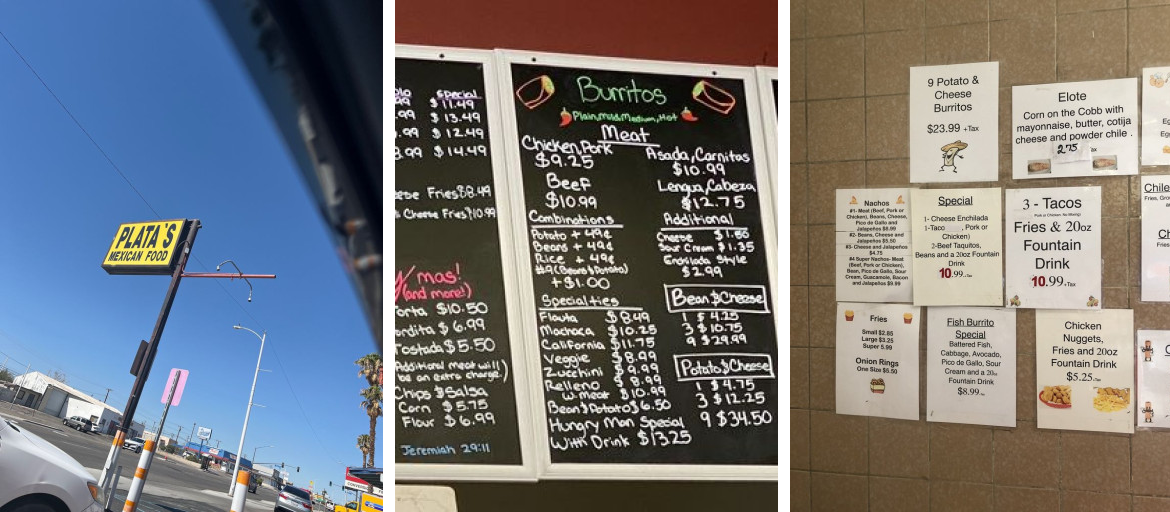 PLATA'S
MEXICAN FOOD
Special
.99 $11.49
.99 $13.49
.99 $12.49
3.99 $14.49
ese Fries $8.49
Cheese Fries $10.99
mas!
(and more!)
orta $10.50
ordita $6.99
Tostada $5.50
(Additional meat will
be an extra charge.)
Chips & Salsa
Corn $5.75
Flour $6.99
Jeremiah 29:11
Burritos
Plain, Mild, Medium, Hot
Meat
Chicken, Pork
$9.25
Beef
$10.99
Asada, Carnitas
$10.99
Lengua, Cabeza
$12.75
Combinations
Potato + 49¢
Beans + 49¢
Rice + 49¢
#9 (Beans & Potato)
+ $1.00
Additional
Cheese $1.55
Sour Cream $1.35
Enchilada Style
$2.99
Specialties
Flauta $8.49
Machaca $10.25
California $11.75
Veggie $8.99
Zucchini $9.99
Relleno $8.99
w. meat $10.99
Bean & Potato $6.50
Hungry Man Special
With Drink $13.25
Bean & Cheese
1 $4.25
3 $10.75
9 $29.99
Potato & Cheese
1 $4.75
3 $12.25
9 $34.50
9 Potato &
Cheese
Burritos
$23.99 +Tax
Elote
Corn on the Cobb with
mayonnaise, butter, cotija
cheese and powder chile .
2.75
Nachos
#1- Meat (Beef, Pork or
Chicken), Beans, Cheese,
Pico de Gallo and
Jalapeños $8.99
#2- Beans, Cheese and
Jalapeños $5.50
#3- Cheese and Jalapeños
$4.75
#4 Super Nachos- Meat
(Beef, Pork or Chicken),
Bean, Pico de Gallo, Sour
Cream, Guacamole, Bacon
and Jalapeños $9.99
Special
1- Cheese Enchilada
1-Taco , Pork or
Chicken)
2-Beef Taquitos,
Beans and a 20oz Fountain
Drink
10.99 +Tax
3 - Tacos
Fries & 20oz
Fountain
Drink
10.99 +Tax
Chile
Fries
Small $2.85
Large $3.25
Super 5.99
Onion Rings
One Size $5.50
Fish Burrito
Special
Battered Fish,
Cabbage, Avocado,
Pico de Gallo, Sour
Cream and a 20oz
Fountain Drink
$8.99 +Tax
Chicken
Nuggets,
Fries and 20oz
Fountain Drink
$5.25 +Tax